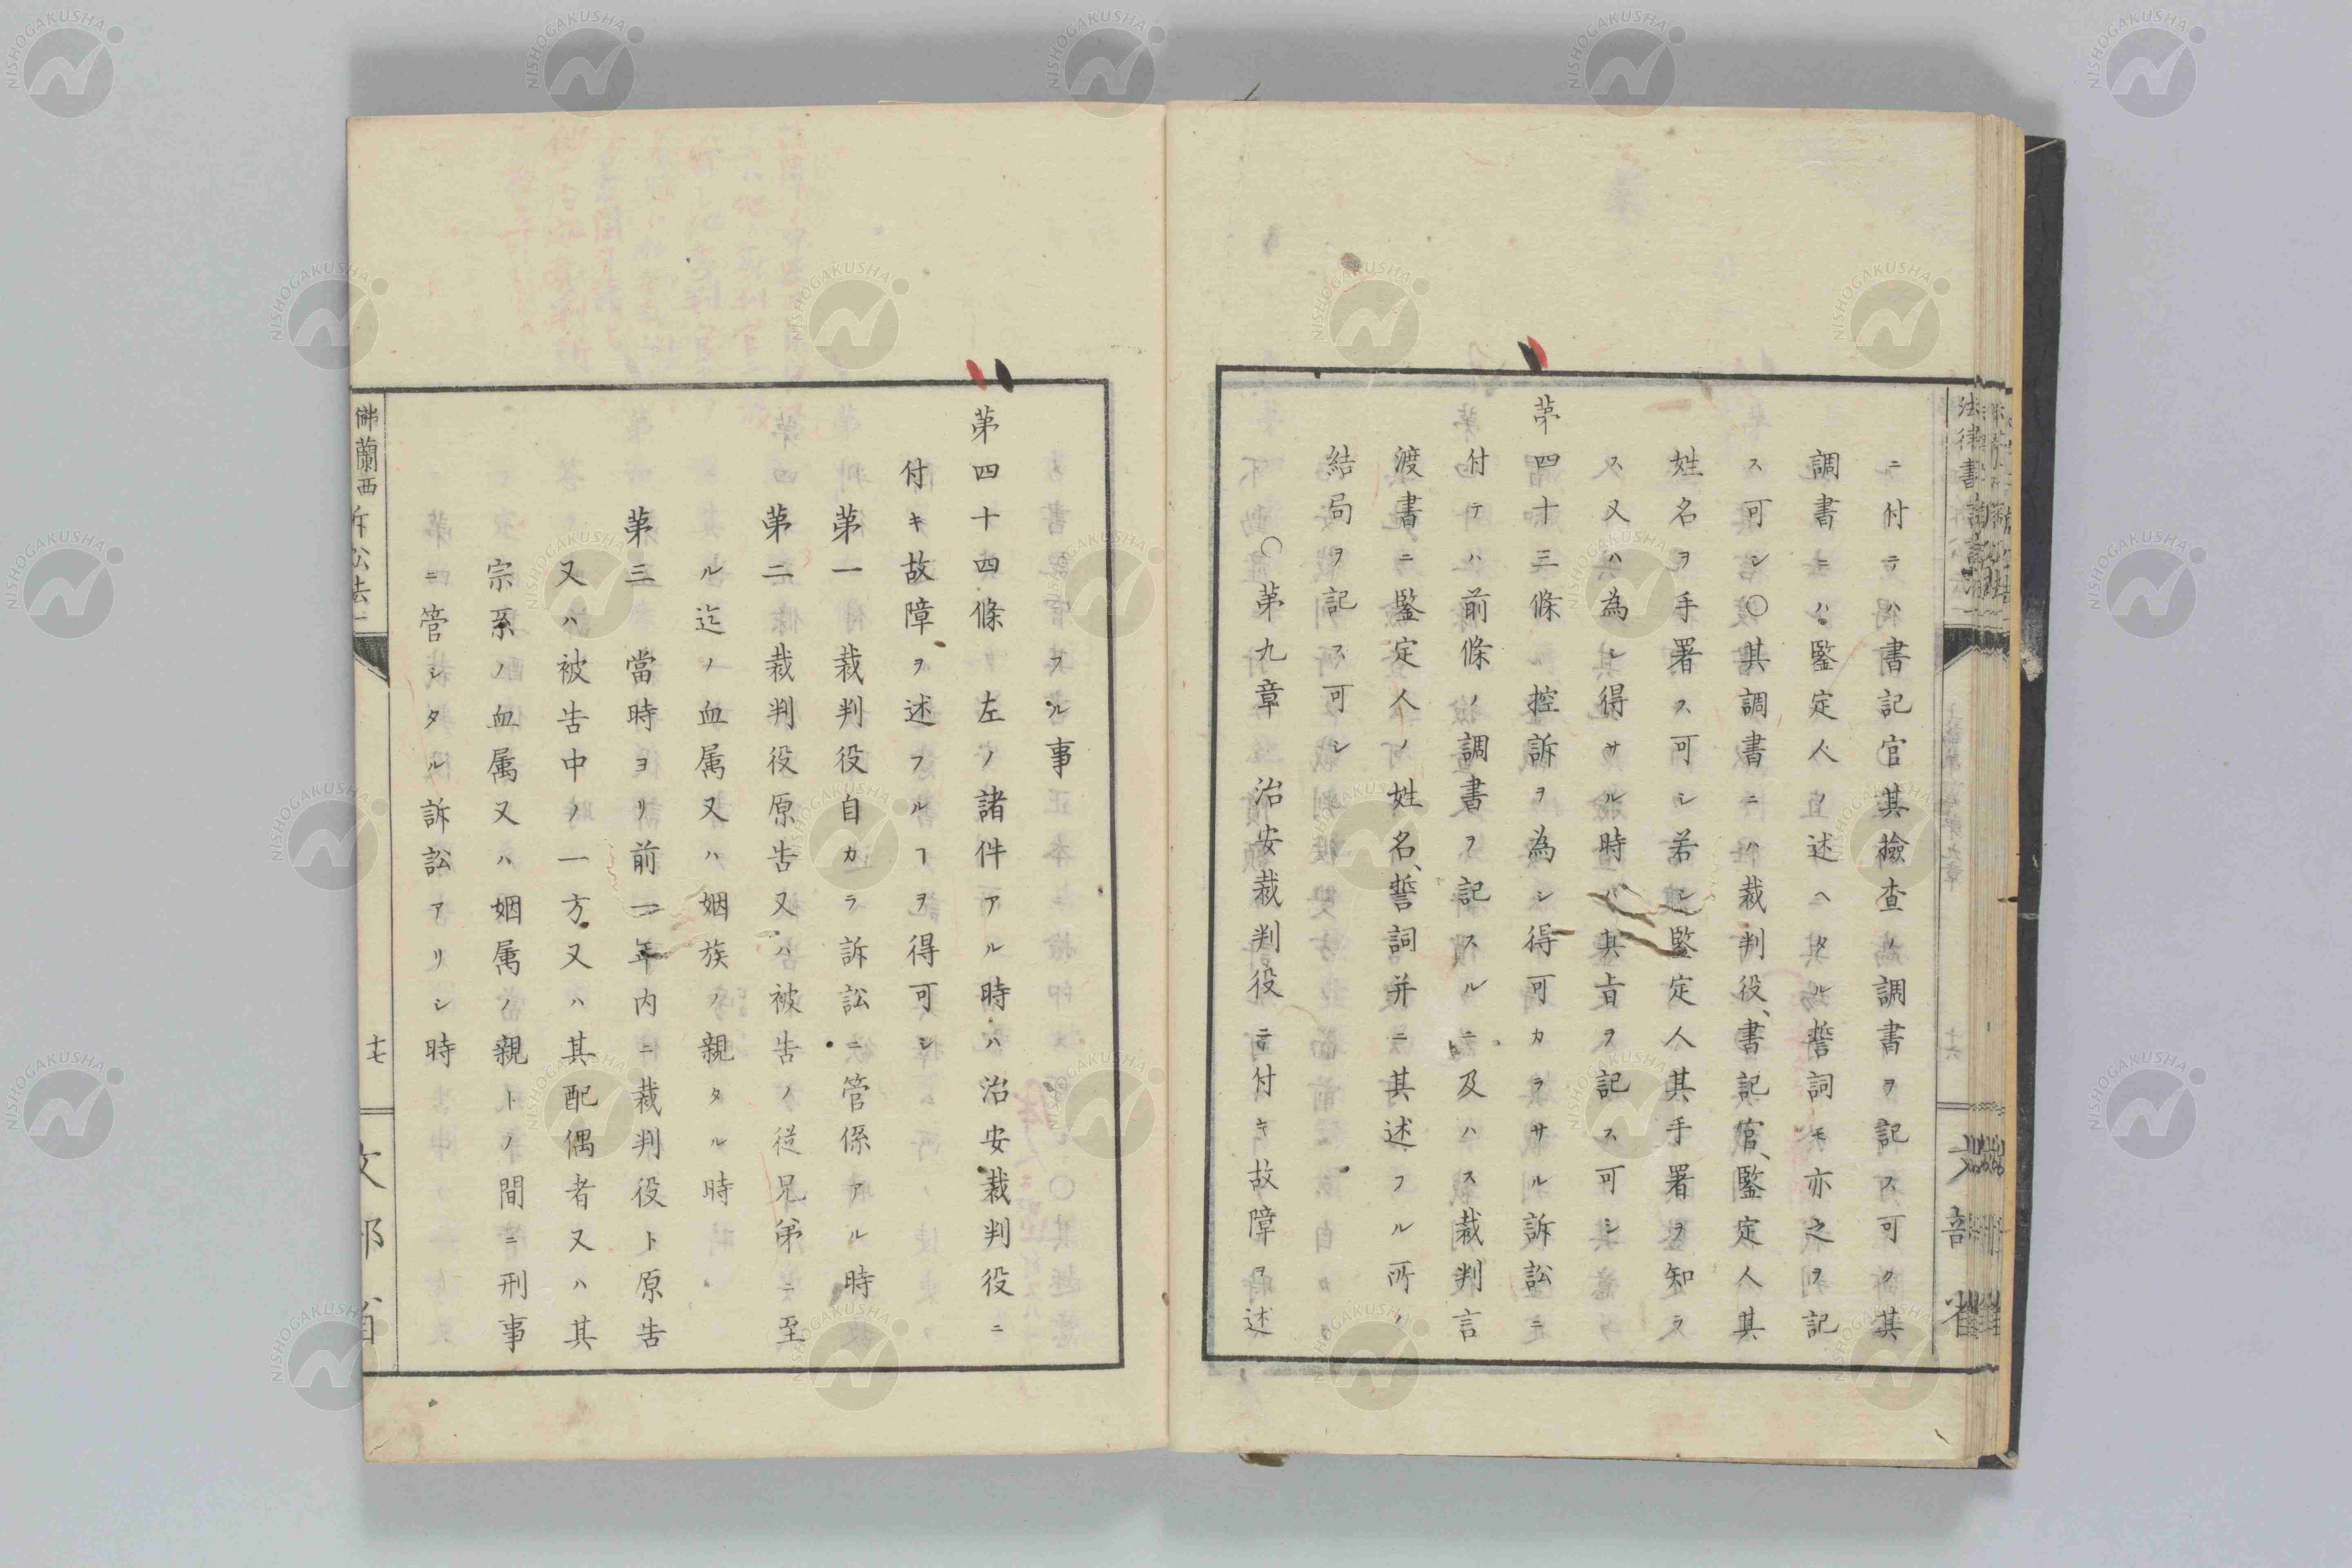 ニ付テハ書記官其撿査ノ調書ヲ記ス可ク其
調書ニハ鑒定人ノ述ヘタル誓詞モ亦之ヲ記
ス可シ〇其調書ニハ裁判役、書記官、鑒定人其
姓名ヲ手署ス可シ若シ鑒定人其手署ヲ知ラ
ス又ハ為シ得サル時ハ其旨ヲ記ス可シ
第四十三條 控訴ヲ為シ得可カラサル訴訟ニ
付テハ前條ノ調書ヲ記スルニ及ハス裁判言
渡書ニ鑒定人ノ姓名、誓詞并ニ其述フル所ノ
結局ヲ記ス可シ
〇第九章 治安裁判役ニ付キ故障ヲ述
フル事
第四十四條 左ノ諸件アル時ハ治安裁判役ニ
付キ故障ヲ述フルヿヲ得可シ
第一 裁判役自カラ訴訟ニ管係アル時
第二 裁判役原告又ハ被告ノ従兄弟ニ至
ル迄ノ血属又ハ姻族ノ親タル時
第三 當時ヨリ前一年内ニ裁判役ト原告
又ハ被告中ノ一方又ハ其配偶者又ハ其
宗系ノ血属又ハ姻属ノ親トノ間ニ刑事
ニ管シタル訴訟アリシ時
佛蘭西訴訟法
十七
文部省
NISHOGAKUSHA